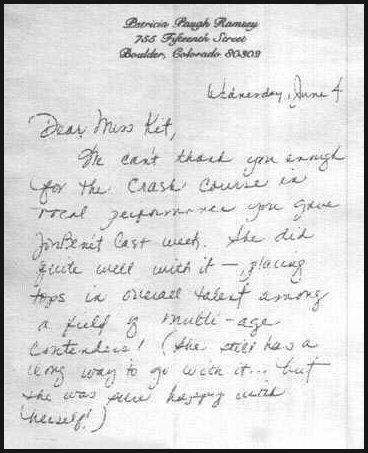 Patricia Paugh Ramsey
755 Fifteenth Street
Boulder, Colorado 80302
Wednesday, June 4
Dear Miss Kit,
We can't thank you enough
for the "Crash" Course in
vocal performance you gave
JonBenét last week. She did
quite well with it —, placing
tops in overall talent among
a field of multi-age
contenders! (She still has a
long way to go with it... but
she was sure happy with
herself!)